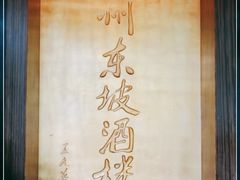 州东坡酒楼